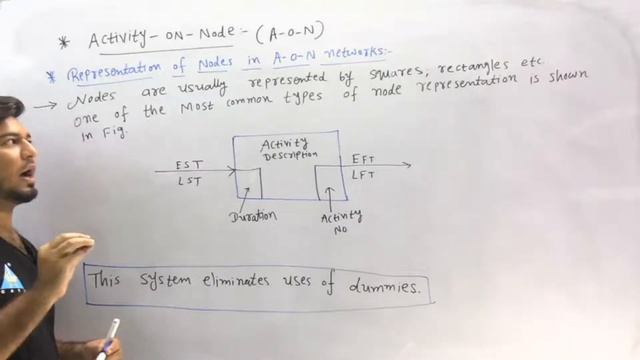 * Activity-ON-Node:- (A-O-N)
* Representation of Nodes in A-O-N networks:-
→ Nodes are usually represented by squares, rectangles etc.
one of the Most common types of node representation is shown
In Fig.
Activity
Description
EST
LST
EFT
LFT
Duration
Activity
No
This system eliminates uses of dummies.